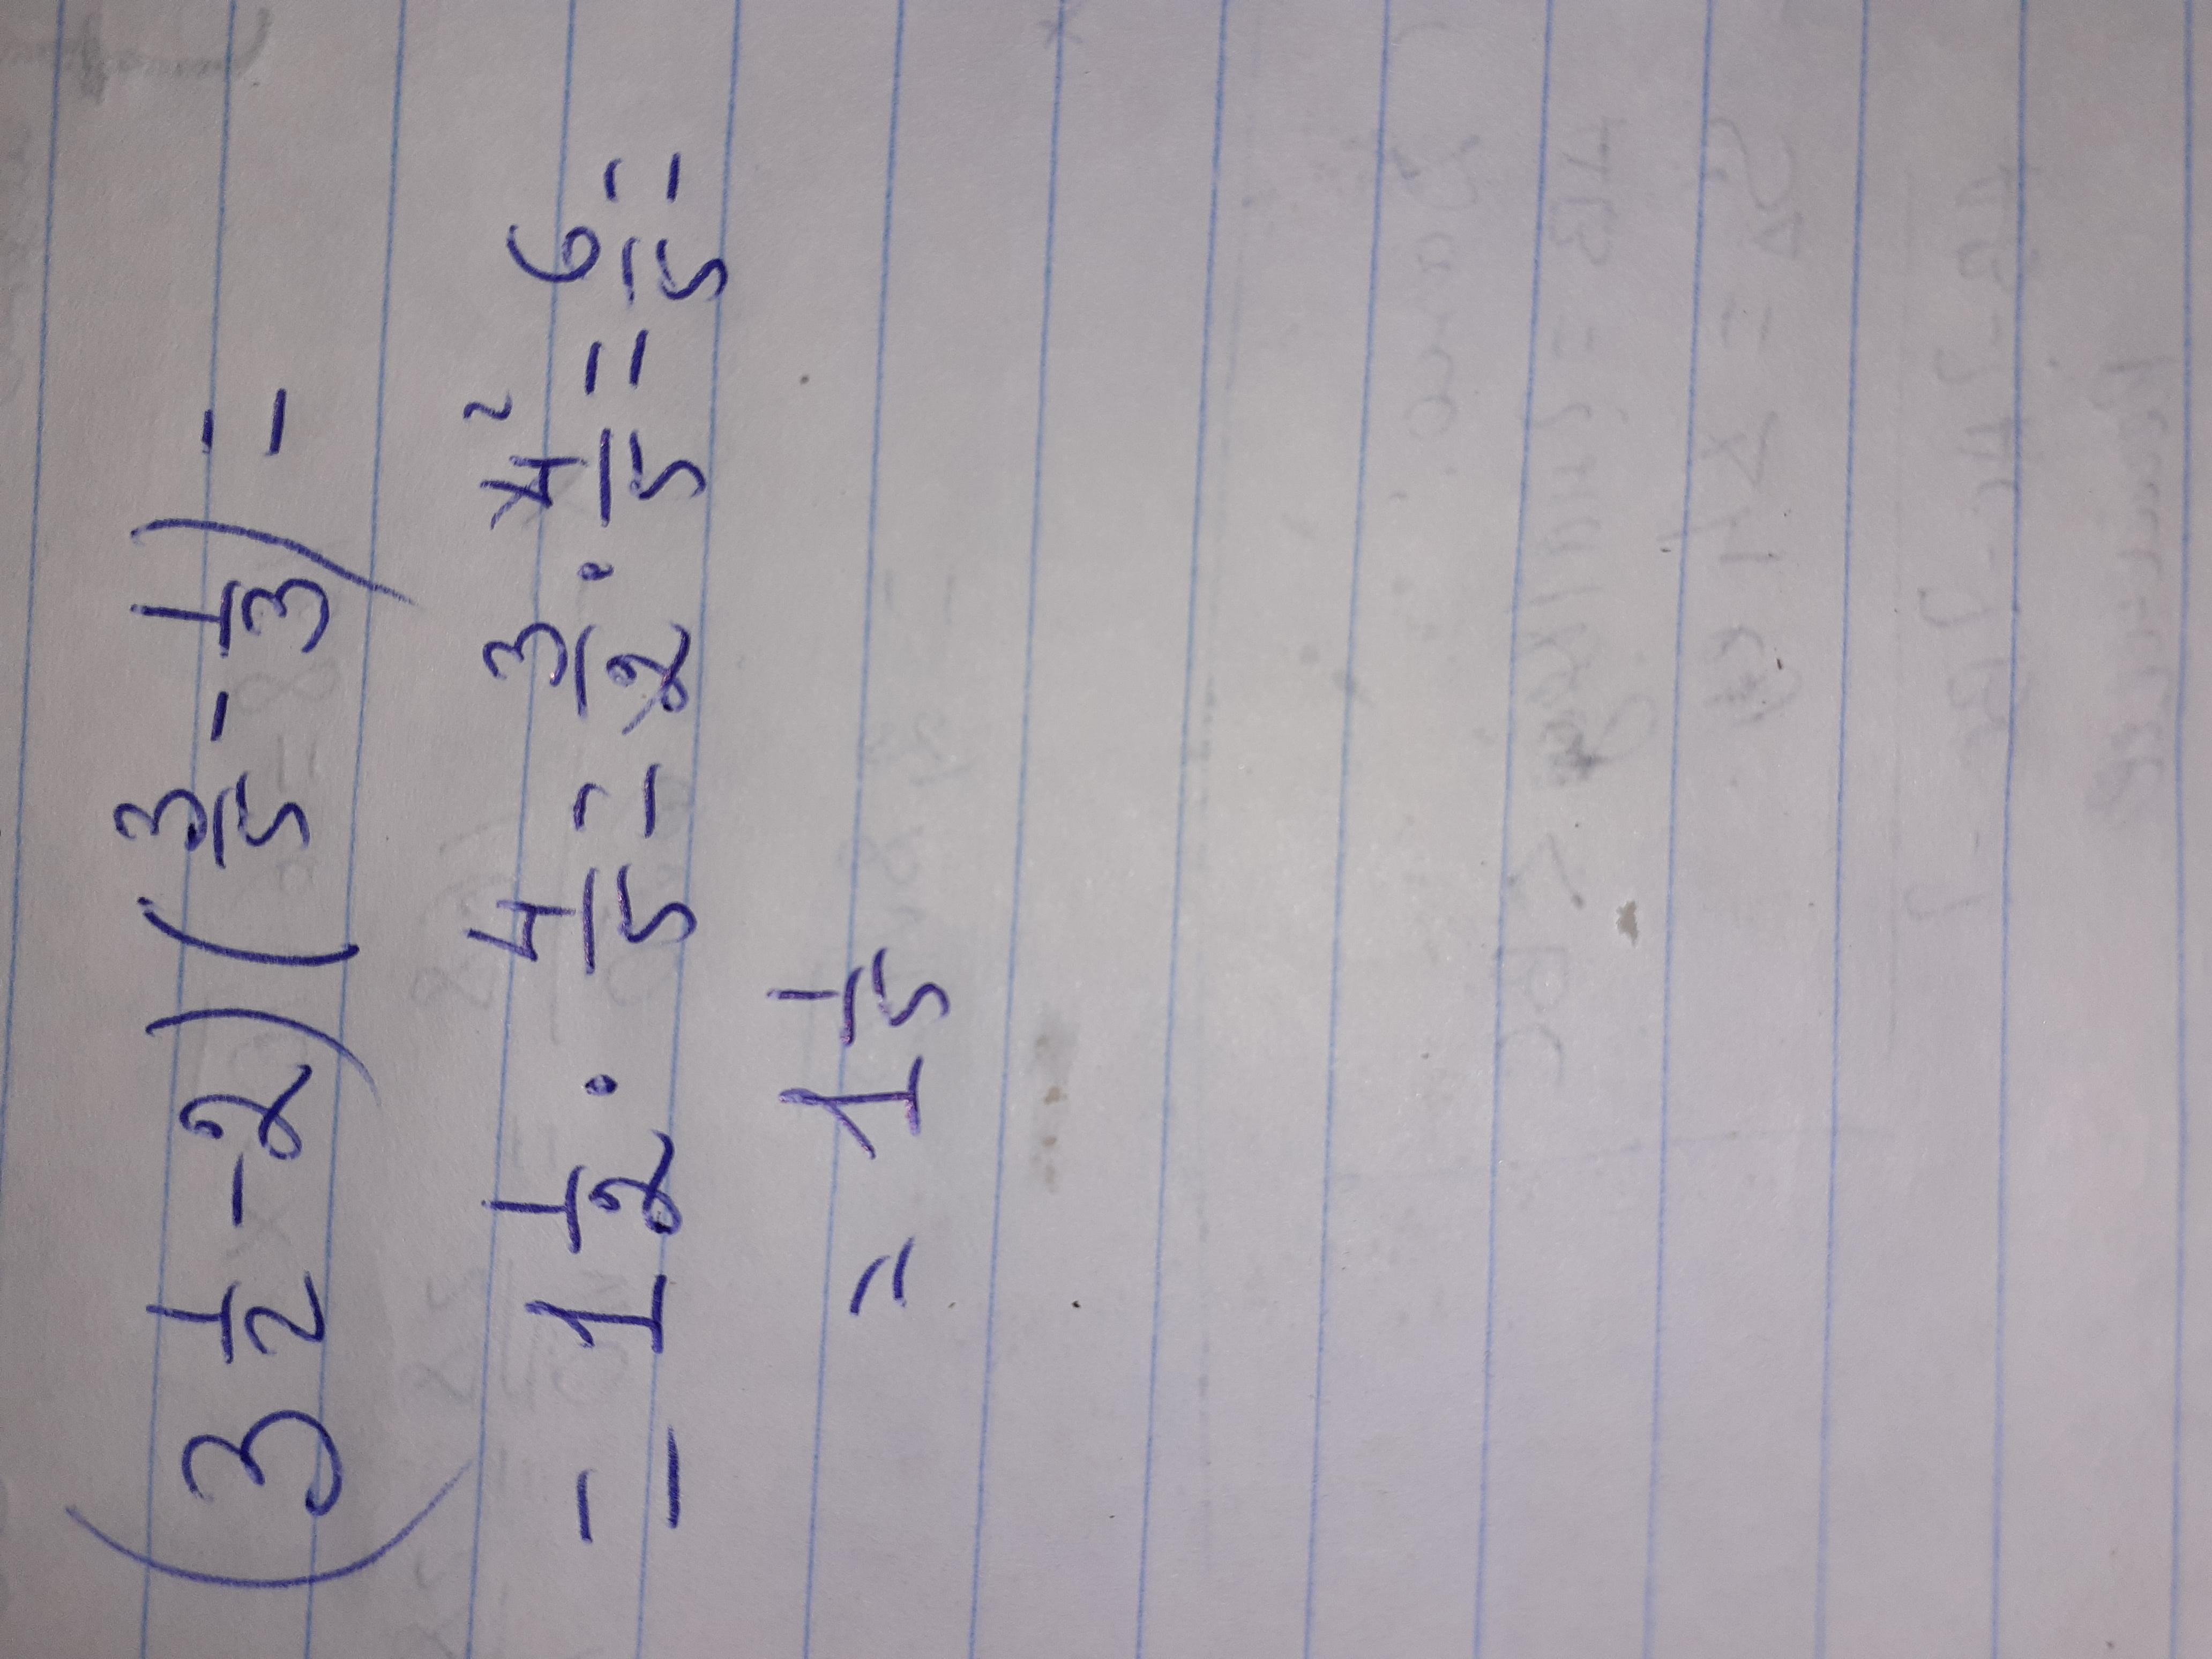 (3 1/2 - 2) (3/5 - 1/3) =
= 1 1/2 · 4/5 = 3/2 · 4/5 2 = 6/5 =
= 1 1/5